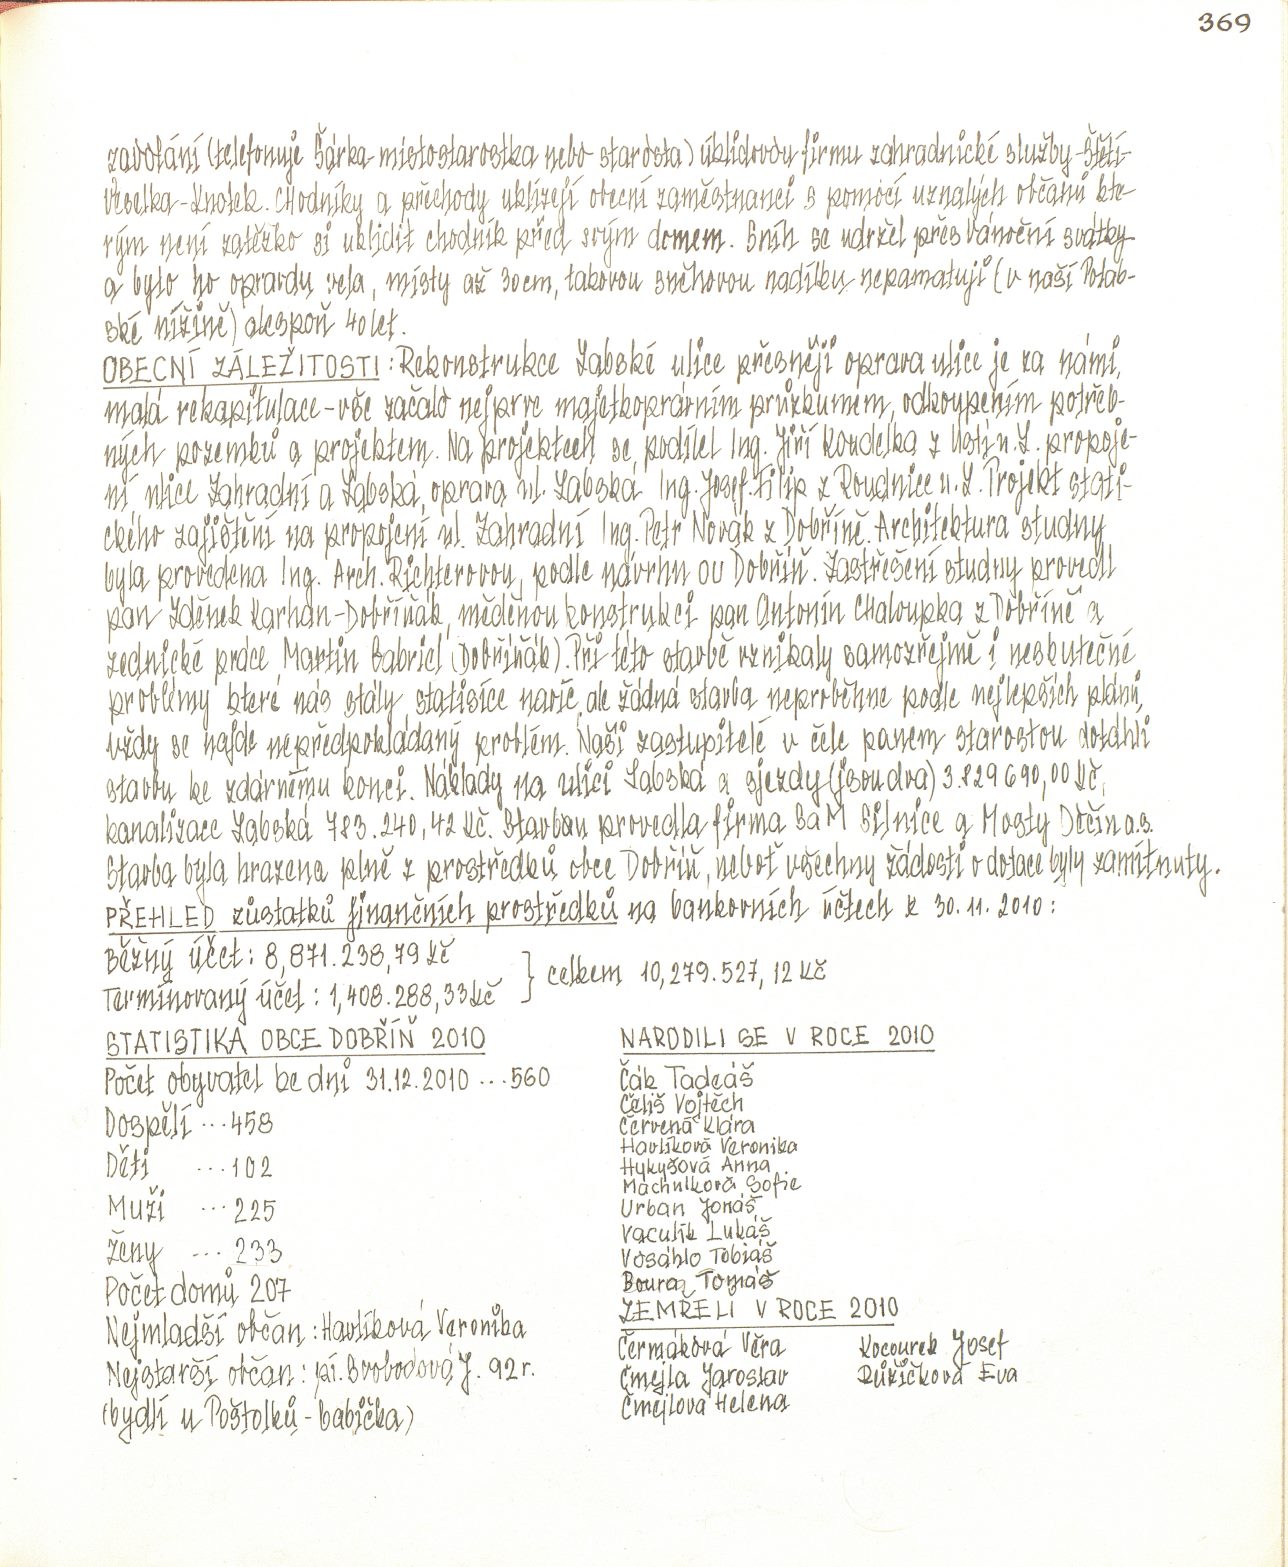 369
zavolání (telefonuje Šárka-místostarostka nebo starosta) úklidovou firmu zahradnické služby-Štětí-
Veselka-Knotek. Chodníky a přechody uklízejí obecní zaměstnanci s pomocí uznalých občanů kte-
rým není zatěžko si uklidit chodník před svým domem. Sníh se udržel přes vánoční svátky
a bylo ho opravdu vela, místy až 30cm, takovou sněhovou nadílku nepamatuji (v naší Polab-
ské nížině) alespoň 40 let.
OBECNÍ ZÁLEŽITOSTI: Rekonstrukce Labské ulice přesněji oprava ulice je za námi,
malá rekapitulace-vše začalo nejprve majetkoprávním průzkumem, odkoupením potřeb-
ných pozemků a projektem. Na projektech se podílel Ing. Jiří Koudelka z Ústí n.L. propoje-
ní ulice Zahradní a Labská, oprava ul. Labská Ing. Josef Filip z Roudnice n.L. Projekt stati-
ckého zajištění na propojení ul. Zahradní Ing. Petr Novák z Dobříně. Architektura studny
byla provedena Ing. Arch. Richterovou, podle návrhu OÚ Dobříň. Zastřešení studny provedl
pan Zdeněk Karhan-Dobříňák, měděnou konstrukci pan Antonín Chaloupka z Dobříně a
zednické práce Martin Gabriel (Dobříňák). Při této stavbě vznikaly samozřejmě i neskutečné
problémy které nás stály statisíce navíc, ale žádná stavba neproběhne podle nejlepších plánů,
vždy se najde nepředpokládaný problém. Naši zastupitelé v čele panem starostou dotáhli
stavbu ke zdárnému konci. Náklady na ulici Labská a sjezdy (jsou dva) 3.829690,00 Kč,
kanalizace Labská 783.240,42 Kč. Stavbau provedla firma SaM Silnice a Mosty Děčín a.s.
Stavba byla hrazena plně z prostředků obce Dobříň, neboť všechny žádosti o dotace byly zamítnuty.
PŘEHLED zůstatků finančních prostředků na bankovních účtech k 30.11.2010:
Běžný účet: 8,871.238,79 Kč
Termínovaný účet: 1,408.288,33 Kč } celkem 10,279.527,12 Kč
STATISTIKA OBCE DOBŘÍŇ 2010
Počet obyvatel ke dni 31.12.2010 ...560
Dospělí ...458
Děti ...102
Muži ...225
Ženy ...233
Počet domů 207
Nejmladší občan: Havlíková Veronika
Nejstarší občan: pí. Svobodová J. 92 r.
(bydlí u Poštolků-babička)
NARODILI SE V ROCE 2010
Čák Tadeáš
Čeliš Vojtěch
Červená Klára
Havlíková Veronika
Hykyšová Anna
Machulková Sofie
Urban Jonáš
Vaculík Lukáš
Vosáhlo Tobiáš
Boura Tomáš
ZEMŘELI V ROCE 2010
Čermáková Věra
Čmejla Jaroslav
Čmejlová Helena
Kocourek Josef
Růžičková Eva